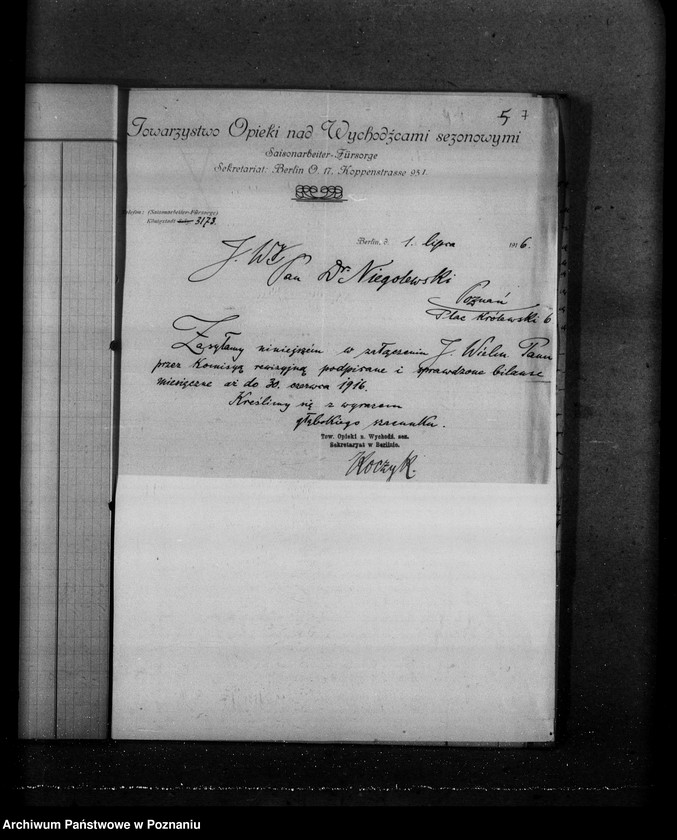 5 7
Towarzystwo Opieki nad Wychodźcami sezonowymi
Saisonarbeiter-Fürsorge
Sekretariat: Berlin O. 17, Koppenstrasse 93 I.
Telefon: (Saisonarbeiter-Fürsorge)
Königstadt 3173.
Berlin, d. 1. lipca 1916.
J. W.
Pan Dr Niegolewski
Poznań
Plac Królewski 6
Zasyłamy niniejszem w załączeniu J. Wielm. Panu
przez Komisyą rewizyjną podpisane i sprawdzone bilanse
miesięczne aż do 30. czerwca 1916.
Kreślimy się z wyrazem
głębokiego szacunku.
Tow. Opieki n. Wychodź. sez.
Sekretaryat w Berlinie.
Koczyk.
Archiwum Państwowe w Poznaniu